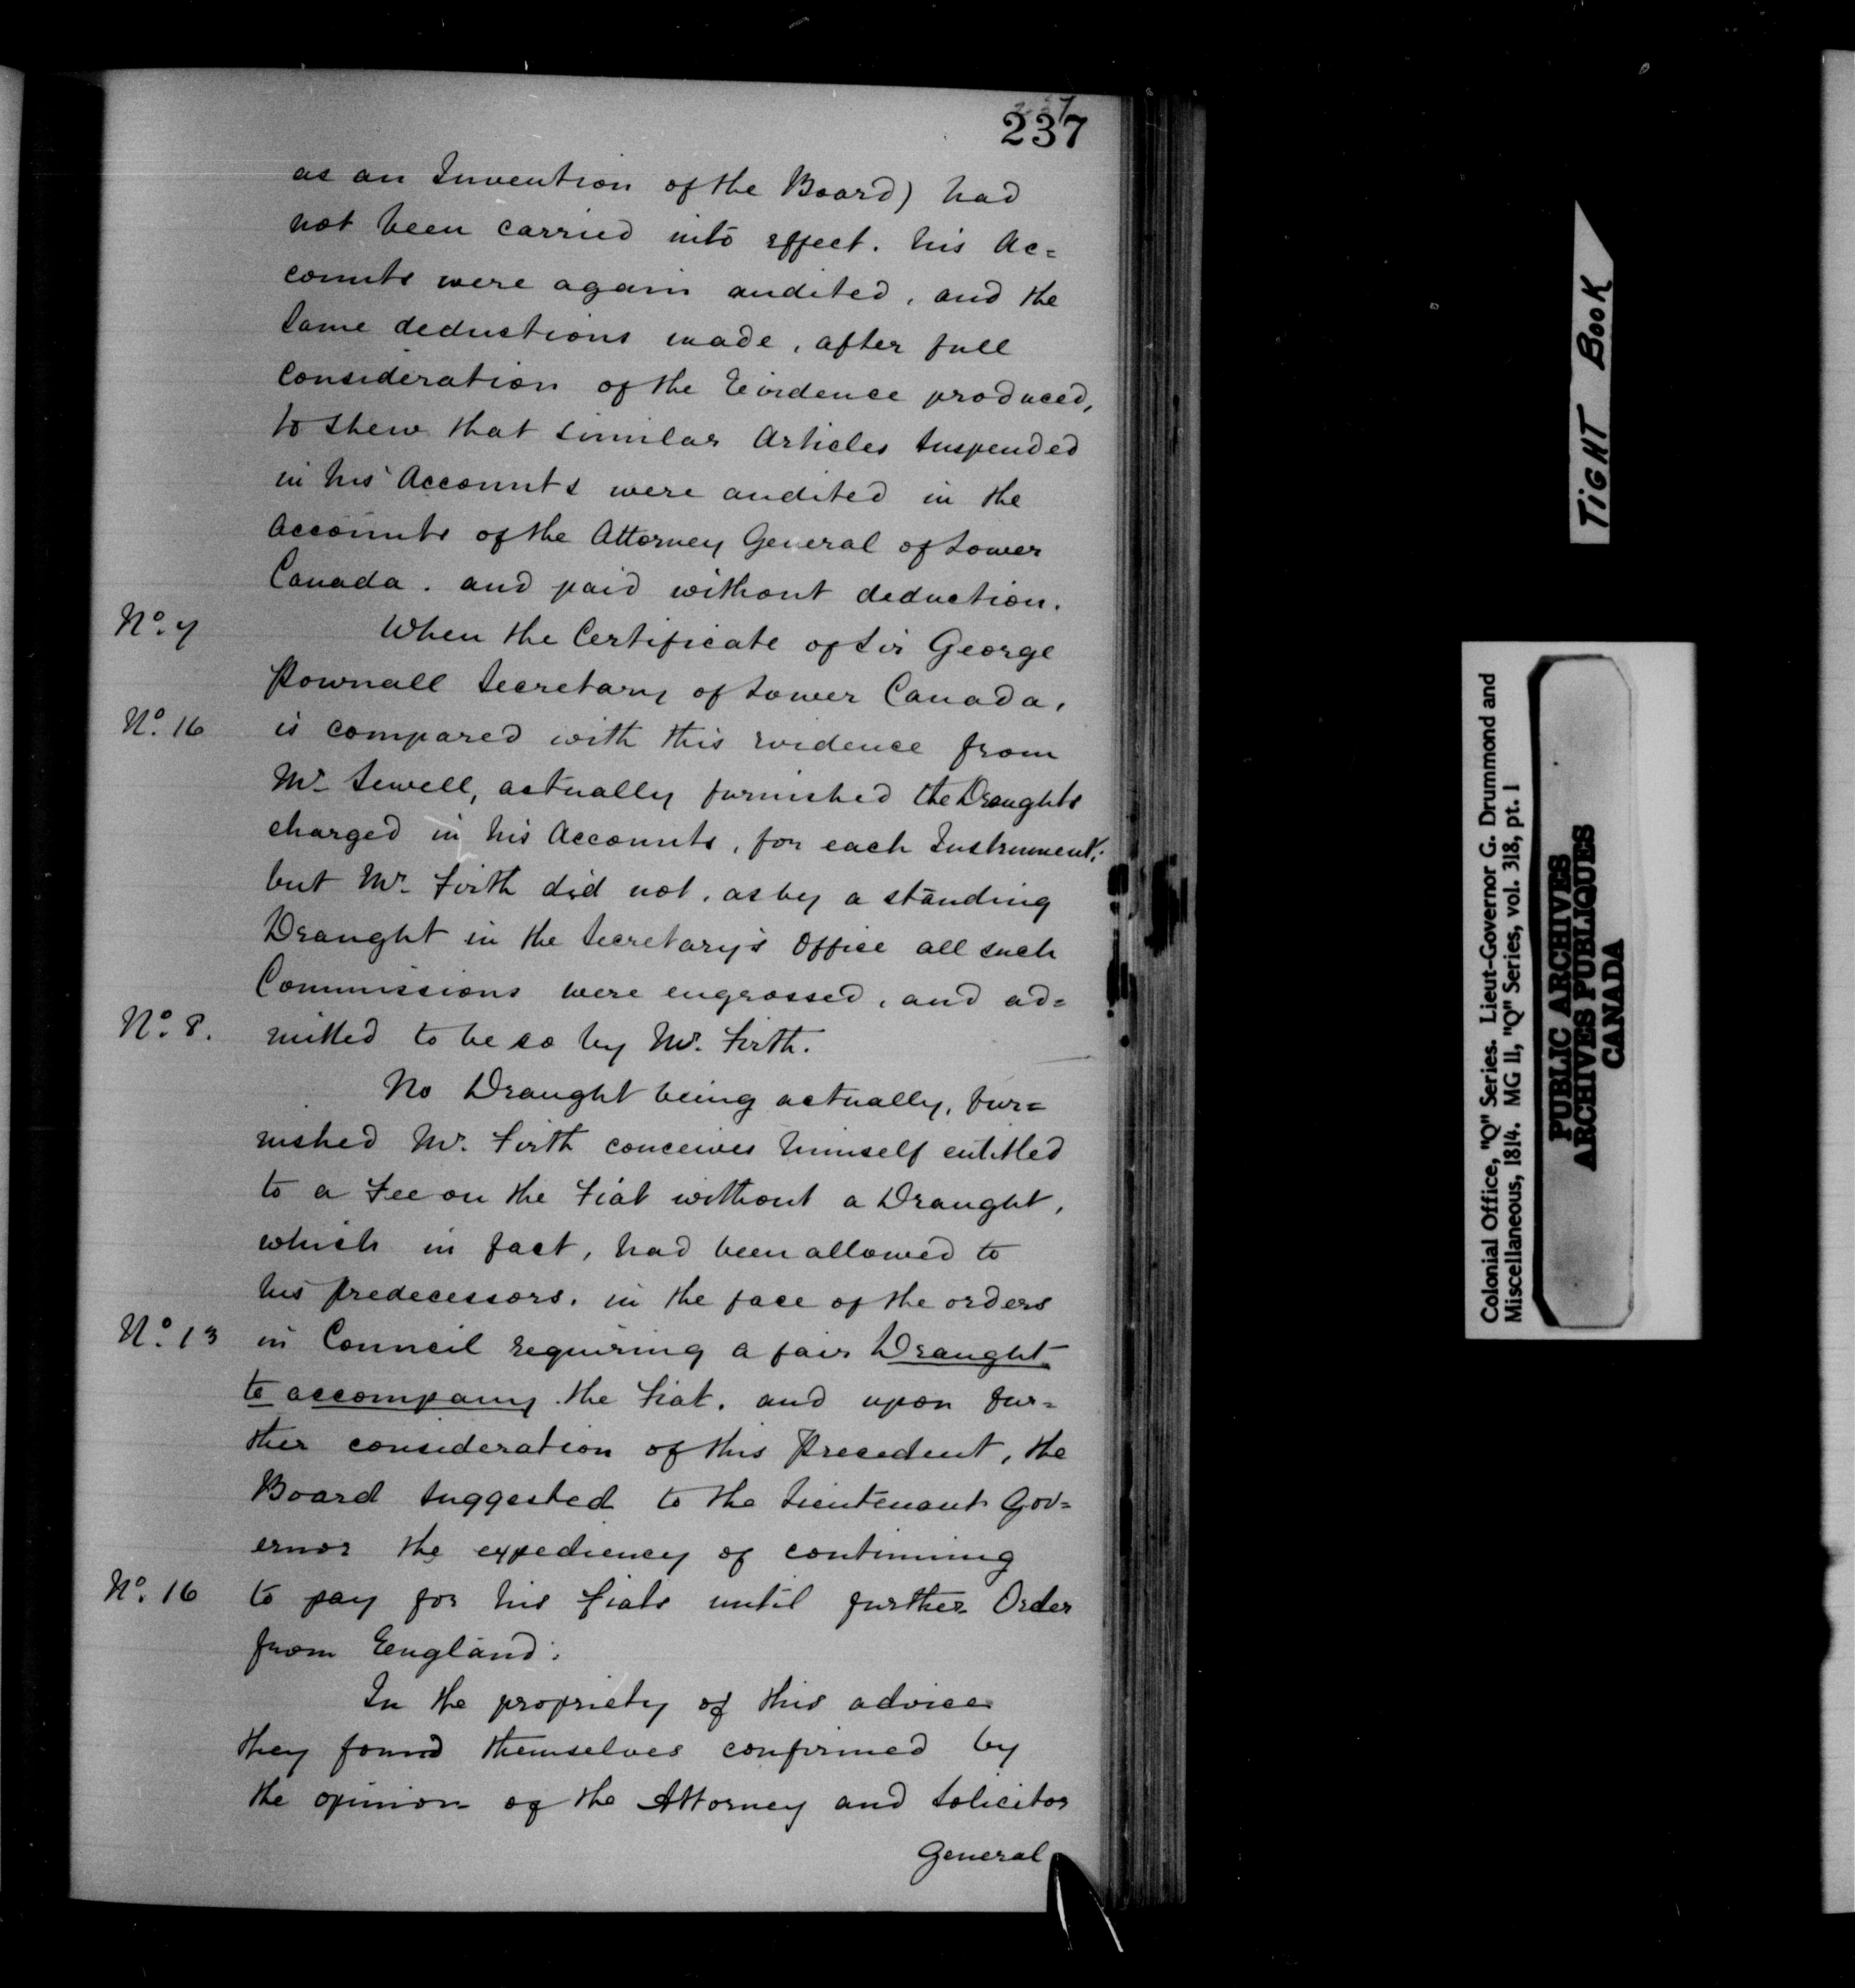 237
as an Invention of the Board) had
not been carried into effect. his Ac=
counts were again audited, and the
same deductions made, after full
consideration of the Evidence produced,
to shew that similar Articles suspended
in his Accounts were audited in the
Accounts of the Attorney General of Lower
Canada. and paid without deduction.
No. 7
When the Certificate of Sir George
Pownall Secretary of Lower Canada,
No. 16
is compared with this evidence from
Mr Sewell, actually furnished the Draughts
charged in his Accounts, for each Instrument,
but Mr. Firth did not, as by a standing
Draught in the Secretary's Office all such
Commissions were engrossed, and ad=
No. 8.
mitted to be so by Mr. Firth.
No Draught being actually, fur=
nished Mr. Firth conceives himself entitled
to a Fee on the Fiat without a Draught,
which in fact, had been allowed to
his predecessors, in the face of the orders
No. 13
in Council requiring a fair Draught
to accompany the Fiat. and upon fur=
ther consideration of this Precedent, the
Board suggested to the Lieutenant Gov=
ernor the expediency of continuing
No. 16
to pay for his fiats until further Order
from England.
In the propriety of this advice
they found themselves confirmed by
the opinion of the Attorney and Solicitor
General
TIGHT BOOK
Colonial Office, "Q" Series. Lieut-Governor G. Drummond and
Miscellaneous, 1814. MG 11, "Q" Series, vol. 318, pt. 1
PUBLIC ARCHIVES
ARCHIVES PUBLIQUES
CANADA